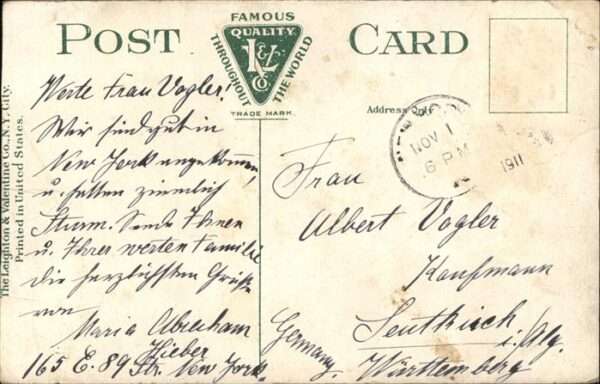 POST CARD
FAMOUS
QUALITY
L&V
Co
THROUGHOUT THE WORLD
TRADE MARK.
Address Only
The Leighton & Valentine Co., N.Y. City.
Printed in United States.
NOV 1
6 PM
1911
Werte Frau Vogler!
Wir sind gut in
New York angekommen,
u. hatten ziemlich
Sturm. Sende Ihnen
u. Ihrer werten Familie
die herzlichsten Grüße
von
Maria
Hieber
165 E. 89 Str. New York.
Frau
Albert Vogler
Kaufmann
Leutkirch
i. Allg.
Württemberg
Germany